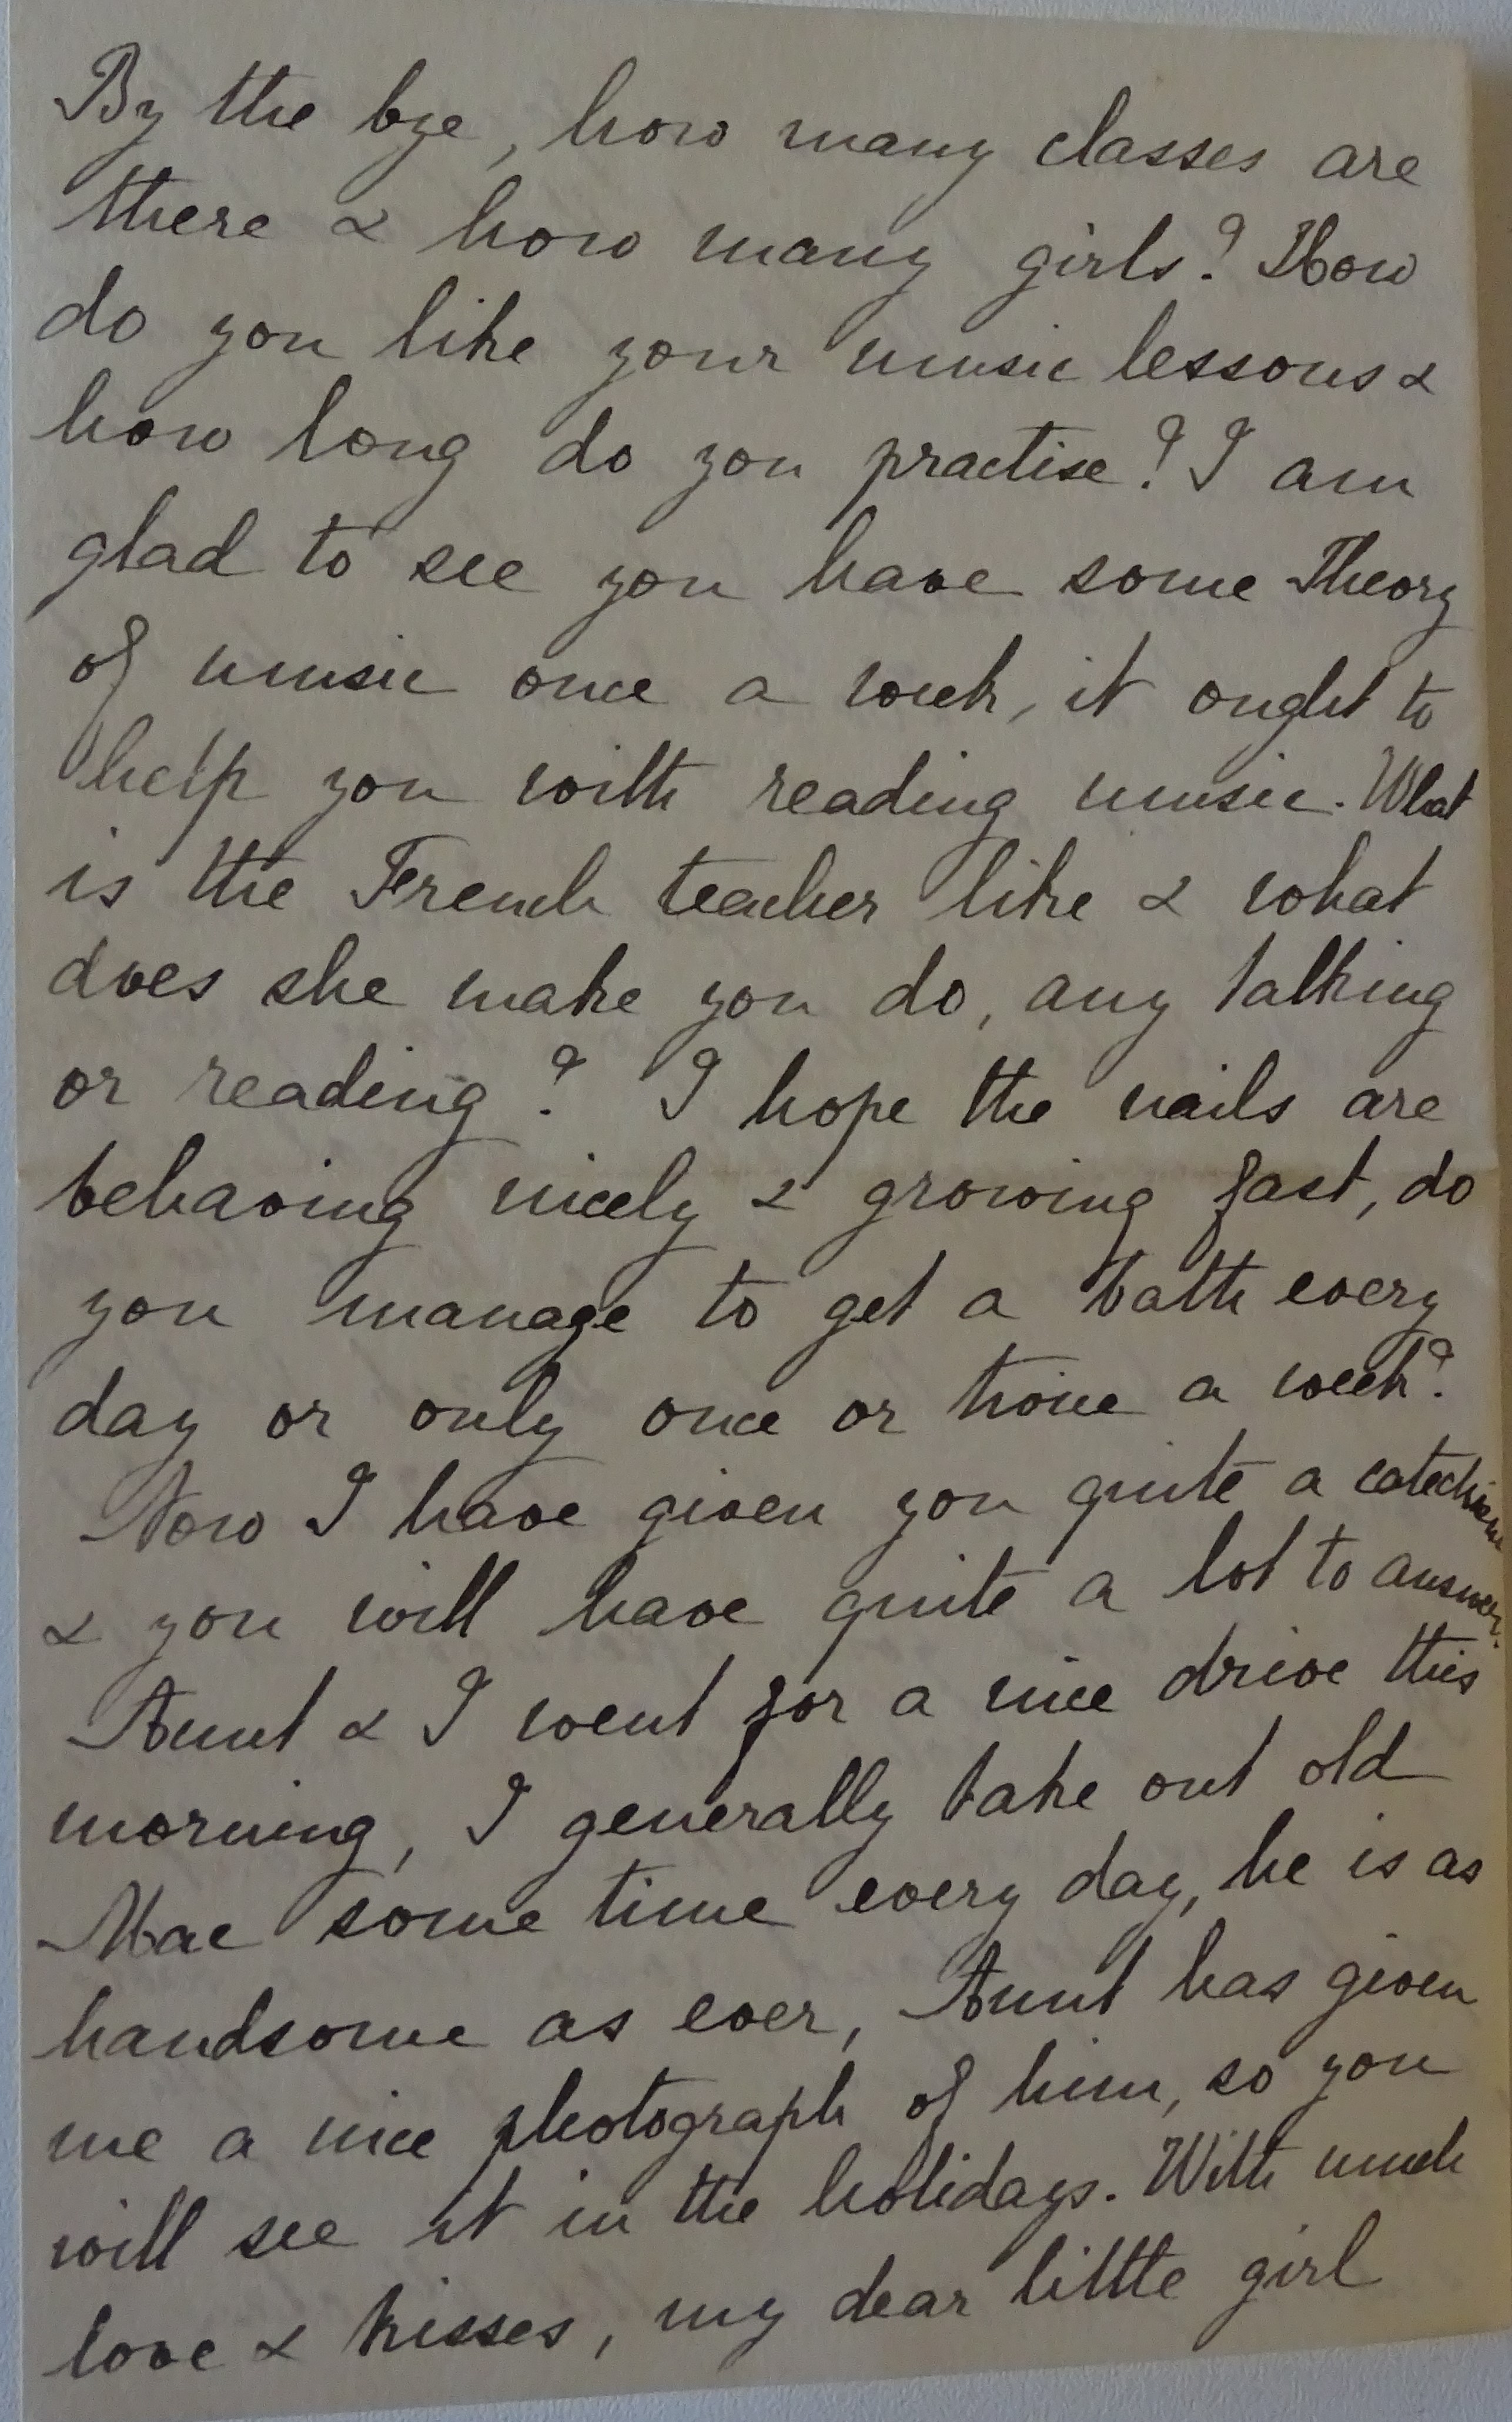 By the bye, how many classes are
there & how many girls? How
do you like your music lessons &
how long do you practise? I am
glad to see you have some Theory
of music once a week, it ought to
help you with reading music. What
is the French teacher like & what
does she make you do, any talking
or reading? I hope the nails are
behaving nicely & growing fast, do
you manage to get a bath every
day or only once or twice a week?
Now I have given you quite a catechism
& you will have quite a lot to answer.
Aunt & I went for a nice drive this
morning, I generally take out old
Mac some time every day, he is as
handsome as ever, Aunt has given
me a nice photograph of him, so you
will see it in the holidays. With much
love & kisses, my dear little girl